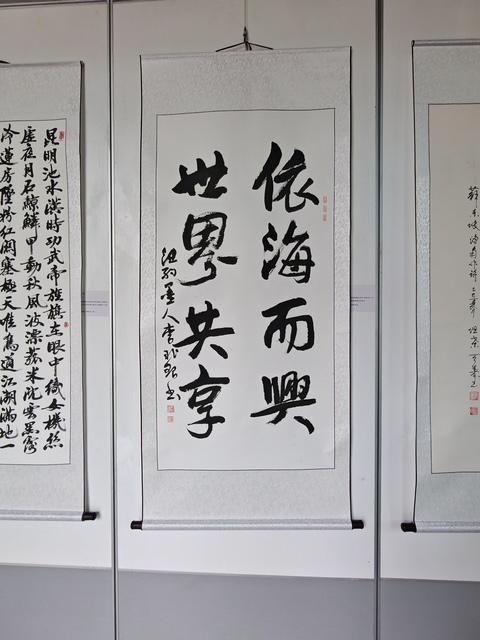 蘇東坡
依海而興
世界共享
紐約墨人李
昆明池水漢時功武帝旌旗在眼中織女機絲
虛夜月石鯨鱗甲動秋風波漂菰米沉雲黑露
冷蓮房墜粉紅關塞極天唯鳥道江湖滿地一